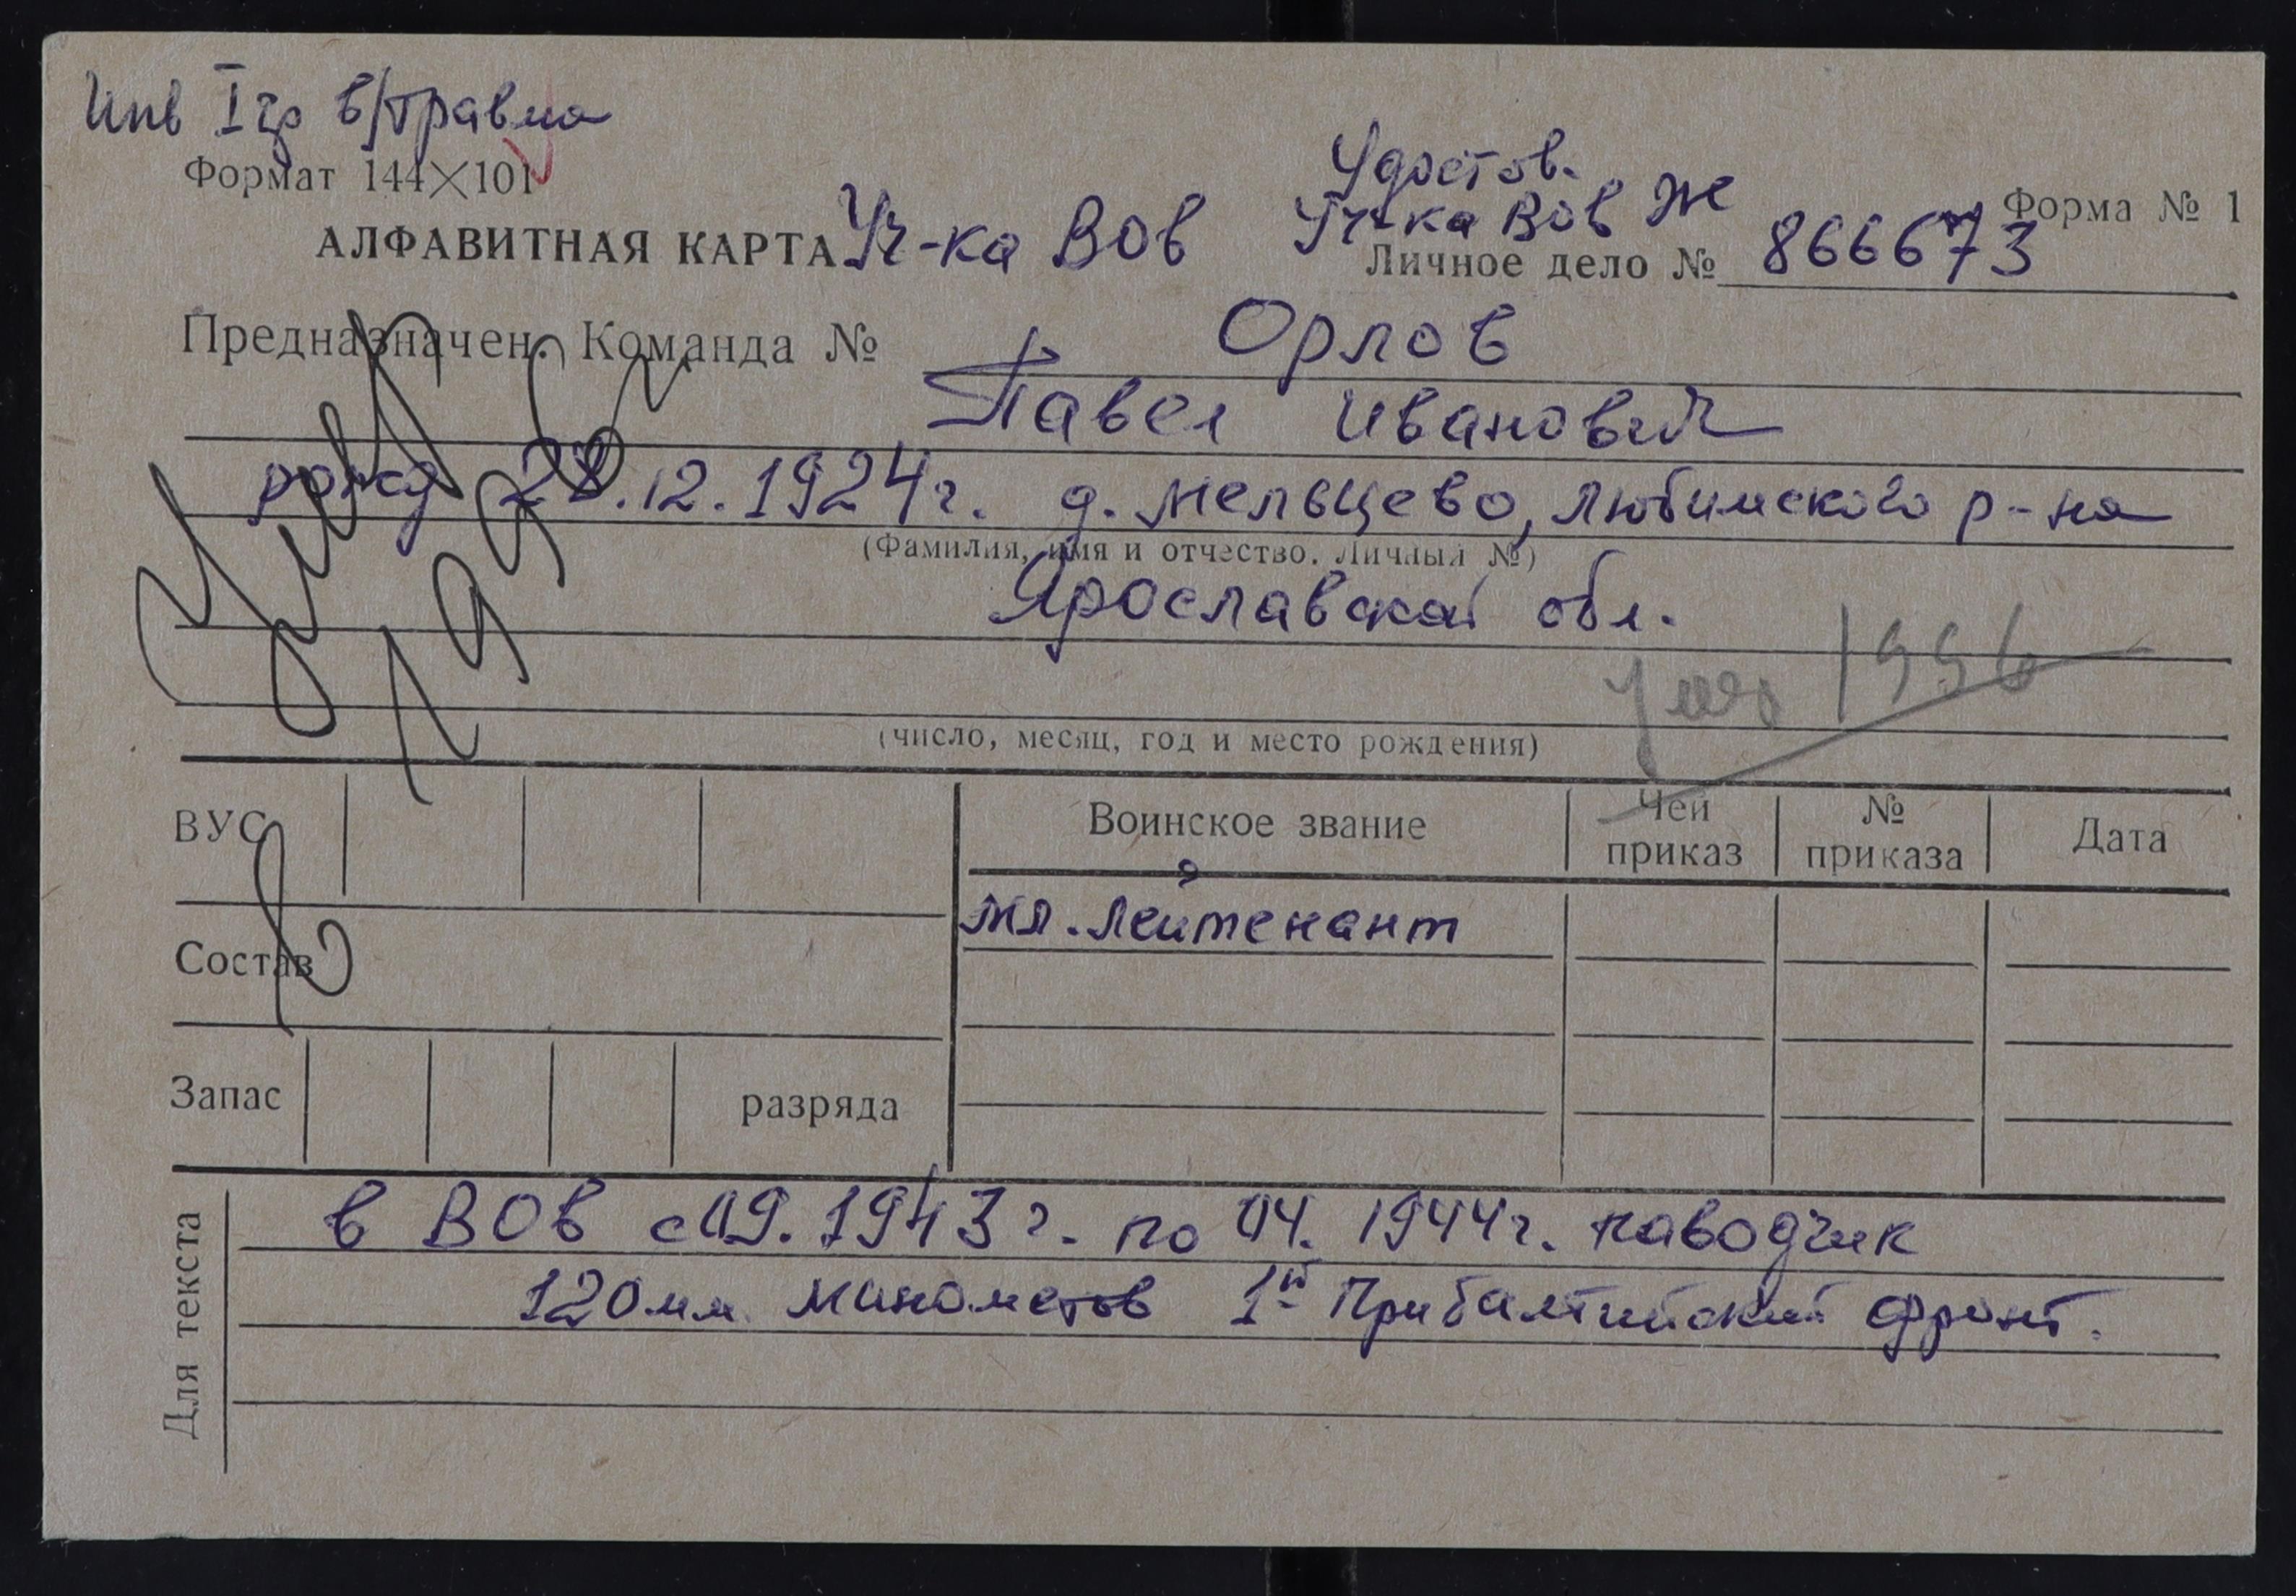 Инв I гр в/травма
Формат 144×101
Удостов.
Уч-ка ВОв Ж
Форма № 1
АЛФАВИТНАЯ КАРТА Уч-ка ВОв
Личное дело № 866673
Предназначен. Команда № Орлов
Павел Иванович
рожд 22.12.1924г. д. Мельцево, Любимского р-на
(Фамилия, имя и отчество. Личный №)
Ярославской обл.
умер 1996
(число, месяц, год и место рождения)
ВУС
Воинское звание
Чей приказ
№ приказа
Дата
мл. лейтенант
Состав
Запас
разряда
Для текста
в ВОв с 09.1943г. по 04.1944г. наводчик
120мм минометов 1й Прибалтийский фронт.